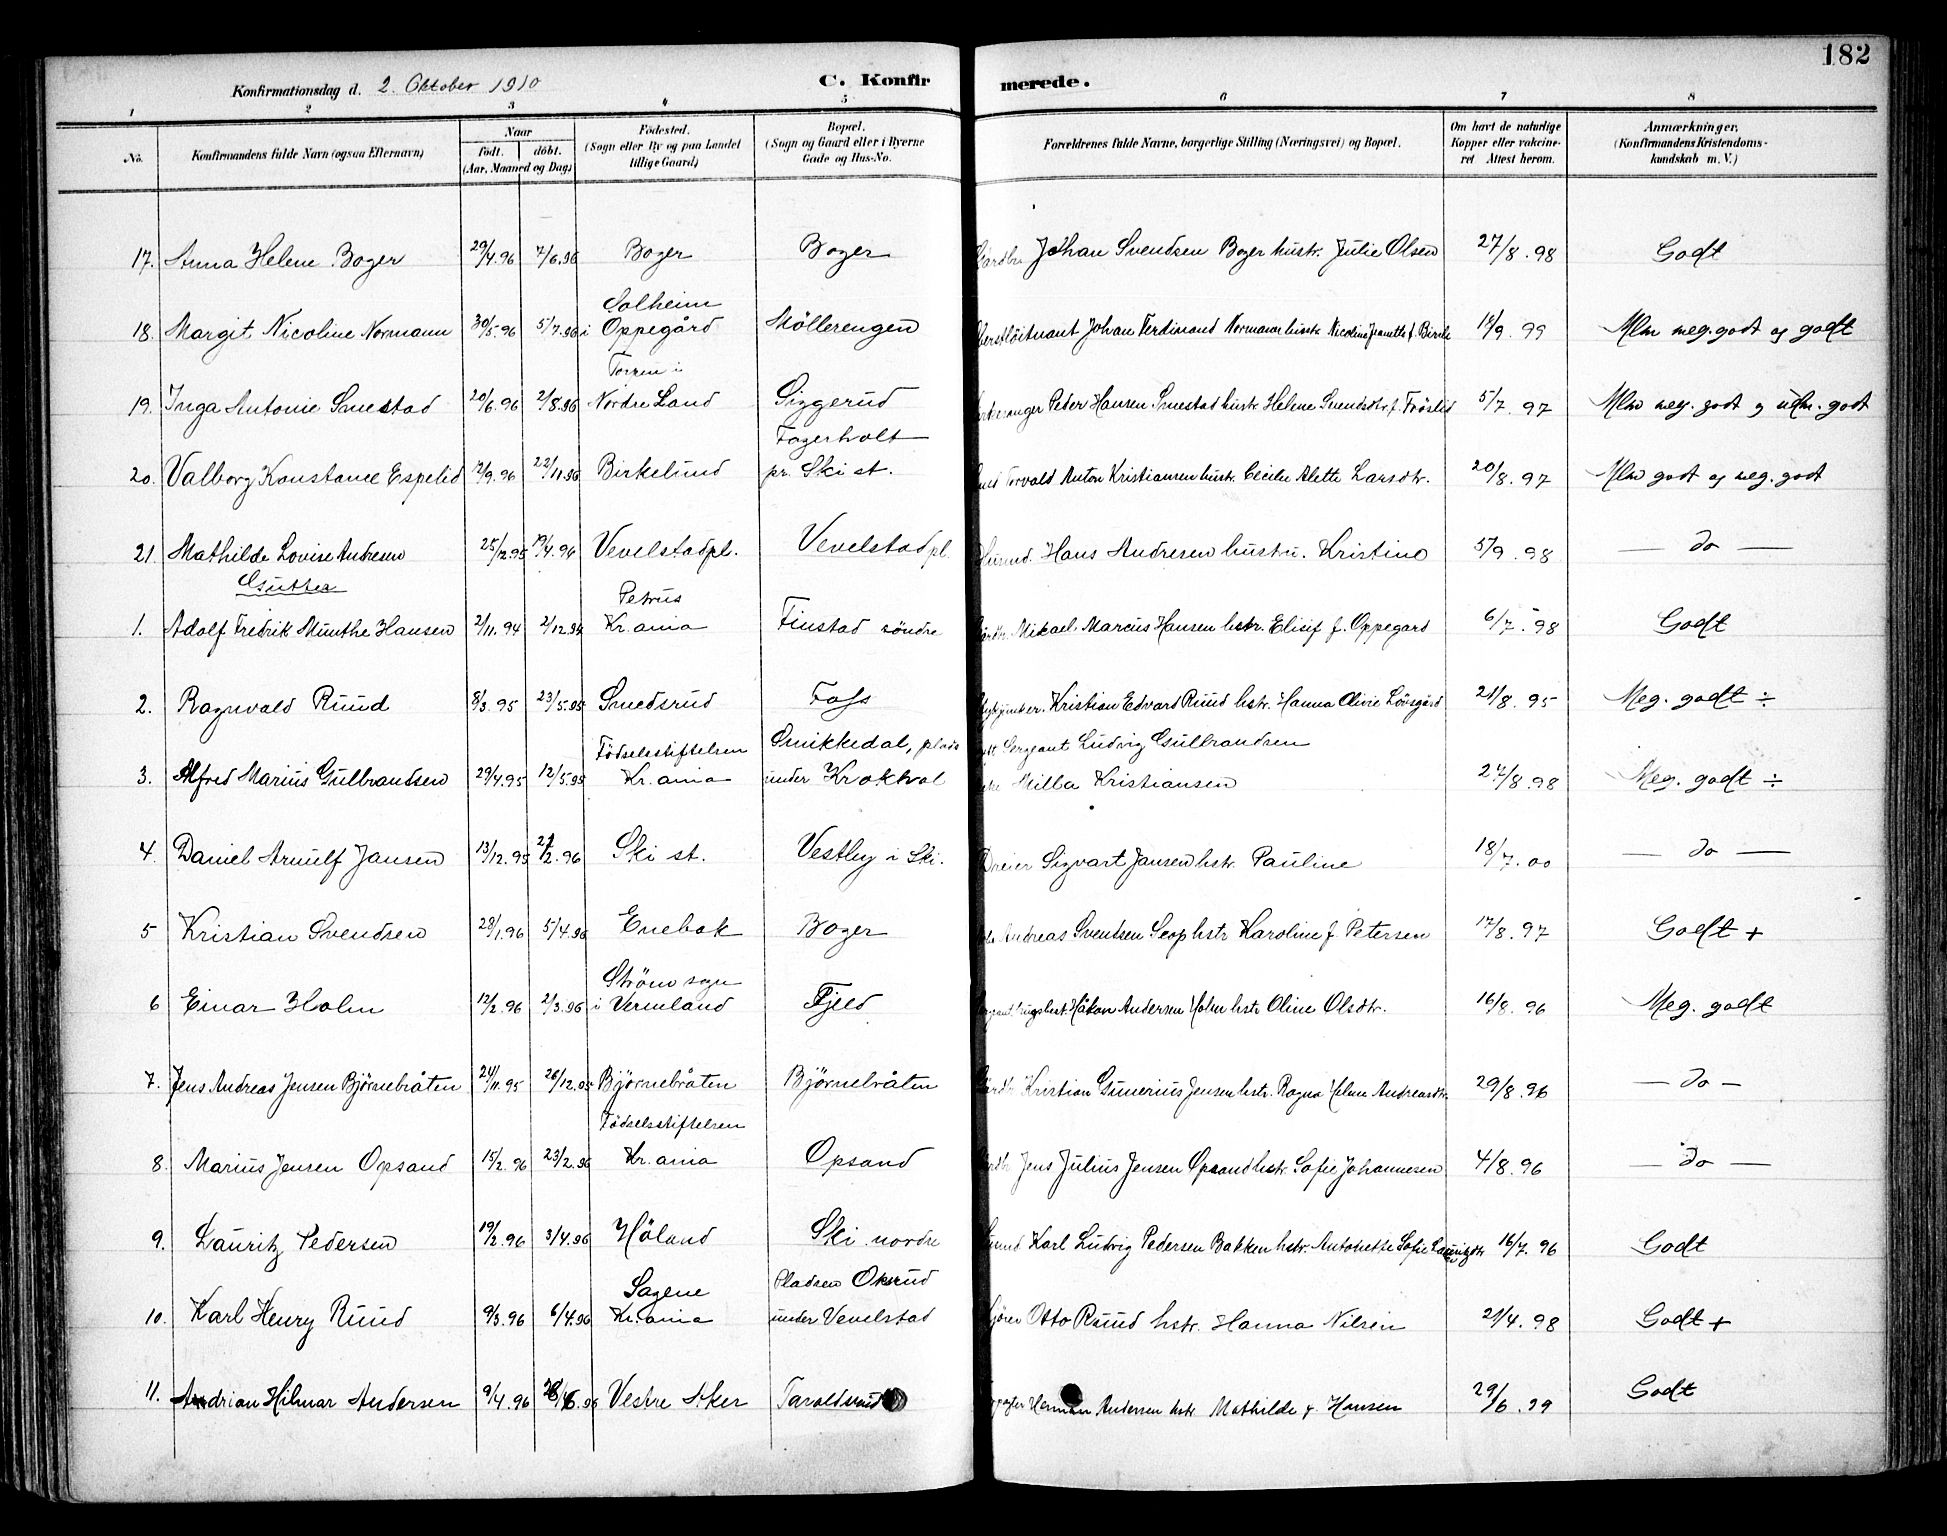 182
Konfirmationsdag d. 2. Oktober 1910 C. Konfir merede.
1 2 3 4 5 6 7 8
No. Konfirmandens fulde Navn (ogsaa Efternavn) Naar født. døbt. (Aar, Maaned og Dag) Fødested. (Sogn eller By og paa Landet tillige Gaard) Bopæl. (Sogn og Gaard eller i Byerne Gade og Hus-No. Forældrenes fulde Navne, borgerlige Stilling (Næringsvei) og Bopæl. Om havt de naturlige Kopper eller vakcineret Attest herom. Anmærkninger. (Konfirmandens Kristendomskundskab m. V.)
17. Anna Helene Boger 29/4.96 7/6.96 Boger Boger Johan Svendsen Boger hustr. Julie Olsen 27/8.98 Godt
Solheim
18. Margit Nicoline Normann 30/5.96 5/7.96 i Oppegård Möllerengen Johan Ferdinand Normann hustr. Nicoline f. 18/9.99 Mlm meg. godt og godt
i
19. Inga Antonie Smestad 20/6.96 2/8.96 Nordre Land Siggerud Peder Hansen Smestad hustr. Helene Svendsdtr. f. Fröslid 5/7.97 Mlm meg. godt og udm. godt
Fagerholt
20. Valborg Konstance Espelid 12/9.96 22/11.96 Birkelund pr. Ski st. Torvald Anton Kristiansen hustr. Cecilie Alette Larsdtr. 20/8.97 Mlm godt og meg. godt
21. Mathilde Lovise Andresen 25/12.95 19/4.96 Vevelstadpl. Vevelstad pl. Hans Andresen hustru. Kristine 5/9.98 — do —
Gutter
Petrus
1. Adolf Fredrik Munthe Hansen 2/11.94 2/12.94 Kr.ania Finstad söndre Mikael Marcus Hansen hstr. Elisif f. Oppegard 6/7.98 Godt
2. Ragnvald Ruud 8/3.95 23/5.95 Smedsrud Foss Kristian Edvard Ruud hstr. Hanna Olivie Lövsgård 21/8.95 Meg. godt ÷
Födselsstiftelsen Smikkedal, plads Sergeant Ludvig Gulbrandsen
3. Alfred Marius Gulbrandsen 29/4.95 12/5.95 Kr.ania under Krokhol Milla Kristiansen 27/8.98 Meg. godt ÷
4. Daniel Arnulf Jansen 13/12.95 2/2.96 Ski st. Vestby i Ski. Dreier Sigvart Jansen hstr. Pauline 18/7.00 — do —
5 Kristian Svendsen 28/1.96 5/4.96 Enebak Boger Andreas Svendsen hstr Karoline f. Petersen 17/8.97 Godt +
Ström sogn
6 Einar Holm 12/2.96 2/3.96 i Vermland Fjeld Håkon Andersen Holm hstr Oline Olsdtr. 16/8.96 Meg. godt
7. Jens Andreas Jensen Björnebråten 24/11.95 26/12.95 Björnebråten Björnebråten Kristian Gunerius Jensen hstr. Ragna Helene Andreasdtr. 29/8.96 — do —
Födselsstiftelsen
8. Marius Jensen Opsand 15/2.96 23/2.96 Kr.ania Opsand Jens Julius Jensen Opsand hstr. Sofie Johannesen 4/8.96 — do —
9. Lauritz Pedersen 19/2.96 3/4.96 Höland Ski nordre Karl Ludvig Pedersen Bakken hstr. Antonette Sofie 16/7.96 Godt
Sagene Pladsen Oksrud
10. Karl Henry Ruud 9/3.96 6/4.96 Kr.ania under Vevelstad Otto Ruud hstr. Hanna Nilsen 21/4.98 Godt +
11. Andrian Hilmar Andersen 9/4.96 Vestre Aker Taraldsrud Herman Andersen hstr Mathilde f. Hansen 29/6.99 Godt